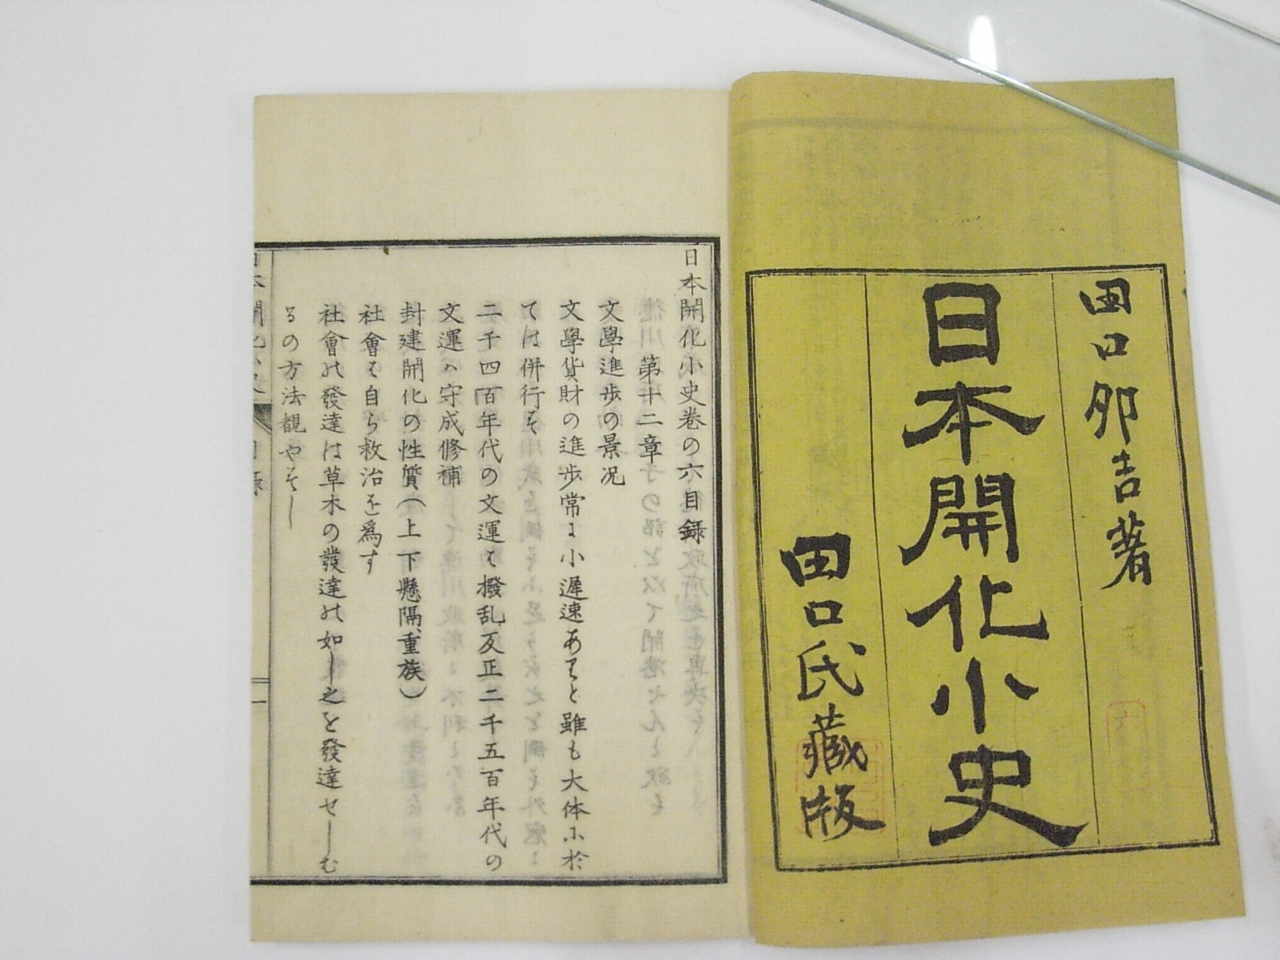 田口卯吉著
日本開化小史
田口氏藏版
日本開化小史巻の六目録
第十二章
文學進歩の景况
文學貨財の進歩常に小遅速ありと雖も大体に於
ては併行す
二千四百年代の文運は撥乱反正二千五百年代の
文運ハ守成修補
封建開化の性質(上下懸隔重族)
社會は自ら救治を爲す
社會の發達は草木の發達の如し之を發達せしむ
るの方法観やすし